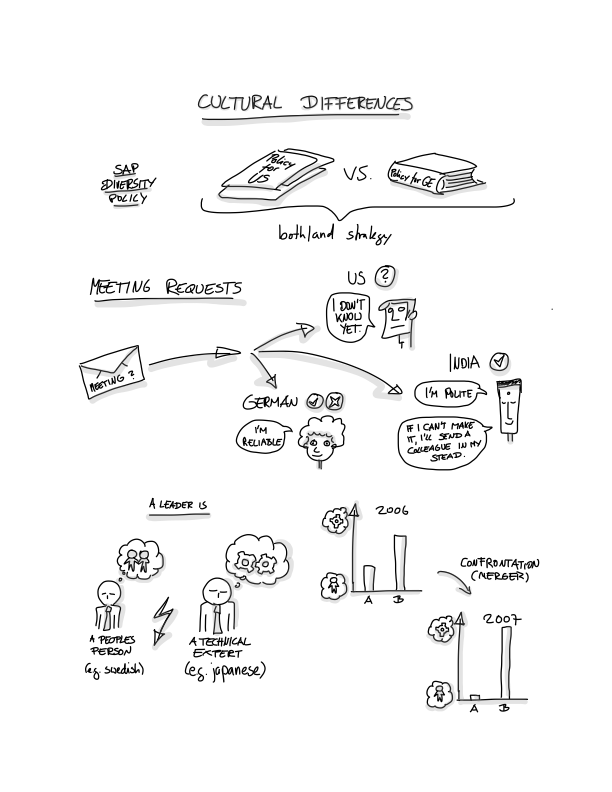 CULTURAL DIFFERENCES
SAP
DIVERSITY
POLICY
Policy
for
US
VS.
Policy for GE
both/and strategy
MEETING REQUESTS
US ?
I DON'T
KNOW
YET.
MEETING?
INDIA
I'M POLITE
IF I CAN'T MAKE
IT, I'LL SEND A
COLLEAGUE IN MY
STEAD.
GERMAN
I'M
RELIABLE
A LEADER IS
A PEOPLES
PERSON
(e.g. swedish)
A TECHNICAL
EXPERT
(e.g. japanese)
2006
A B
CONFRONTATION
(MERGER)
2007
A B